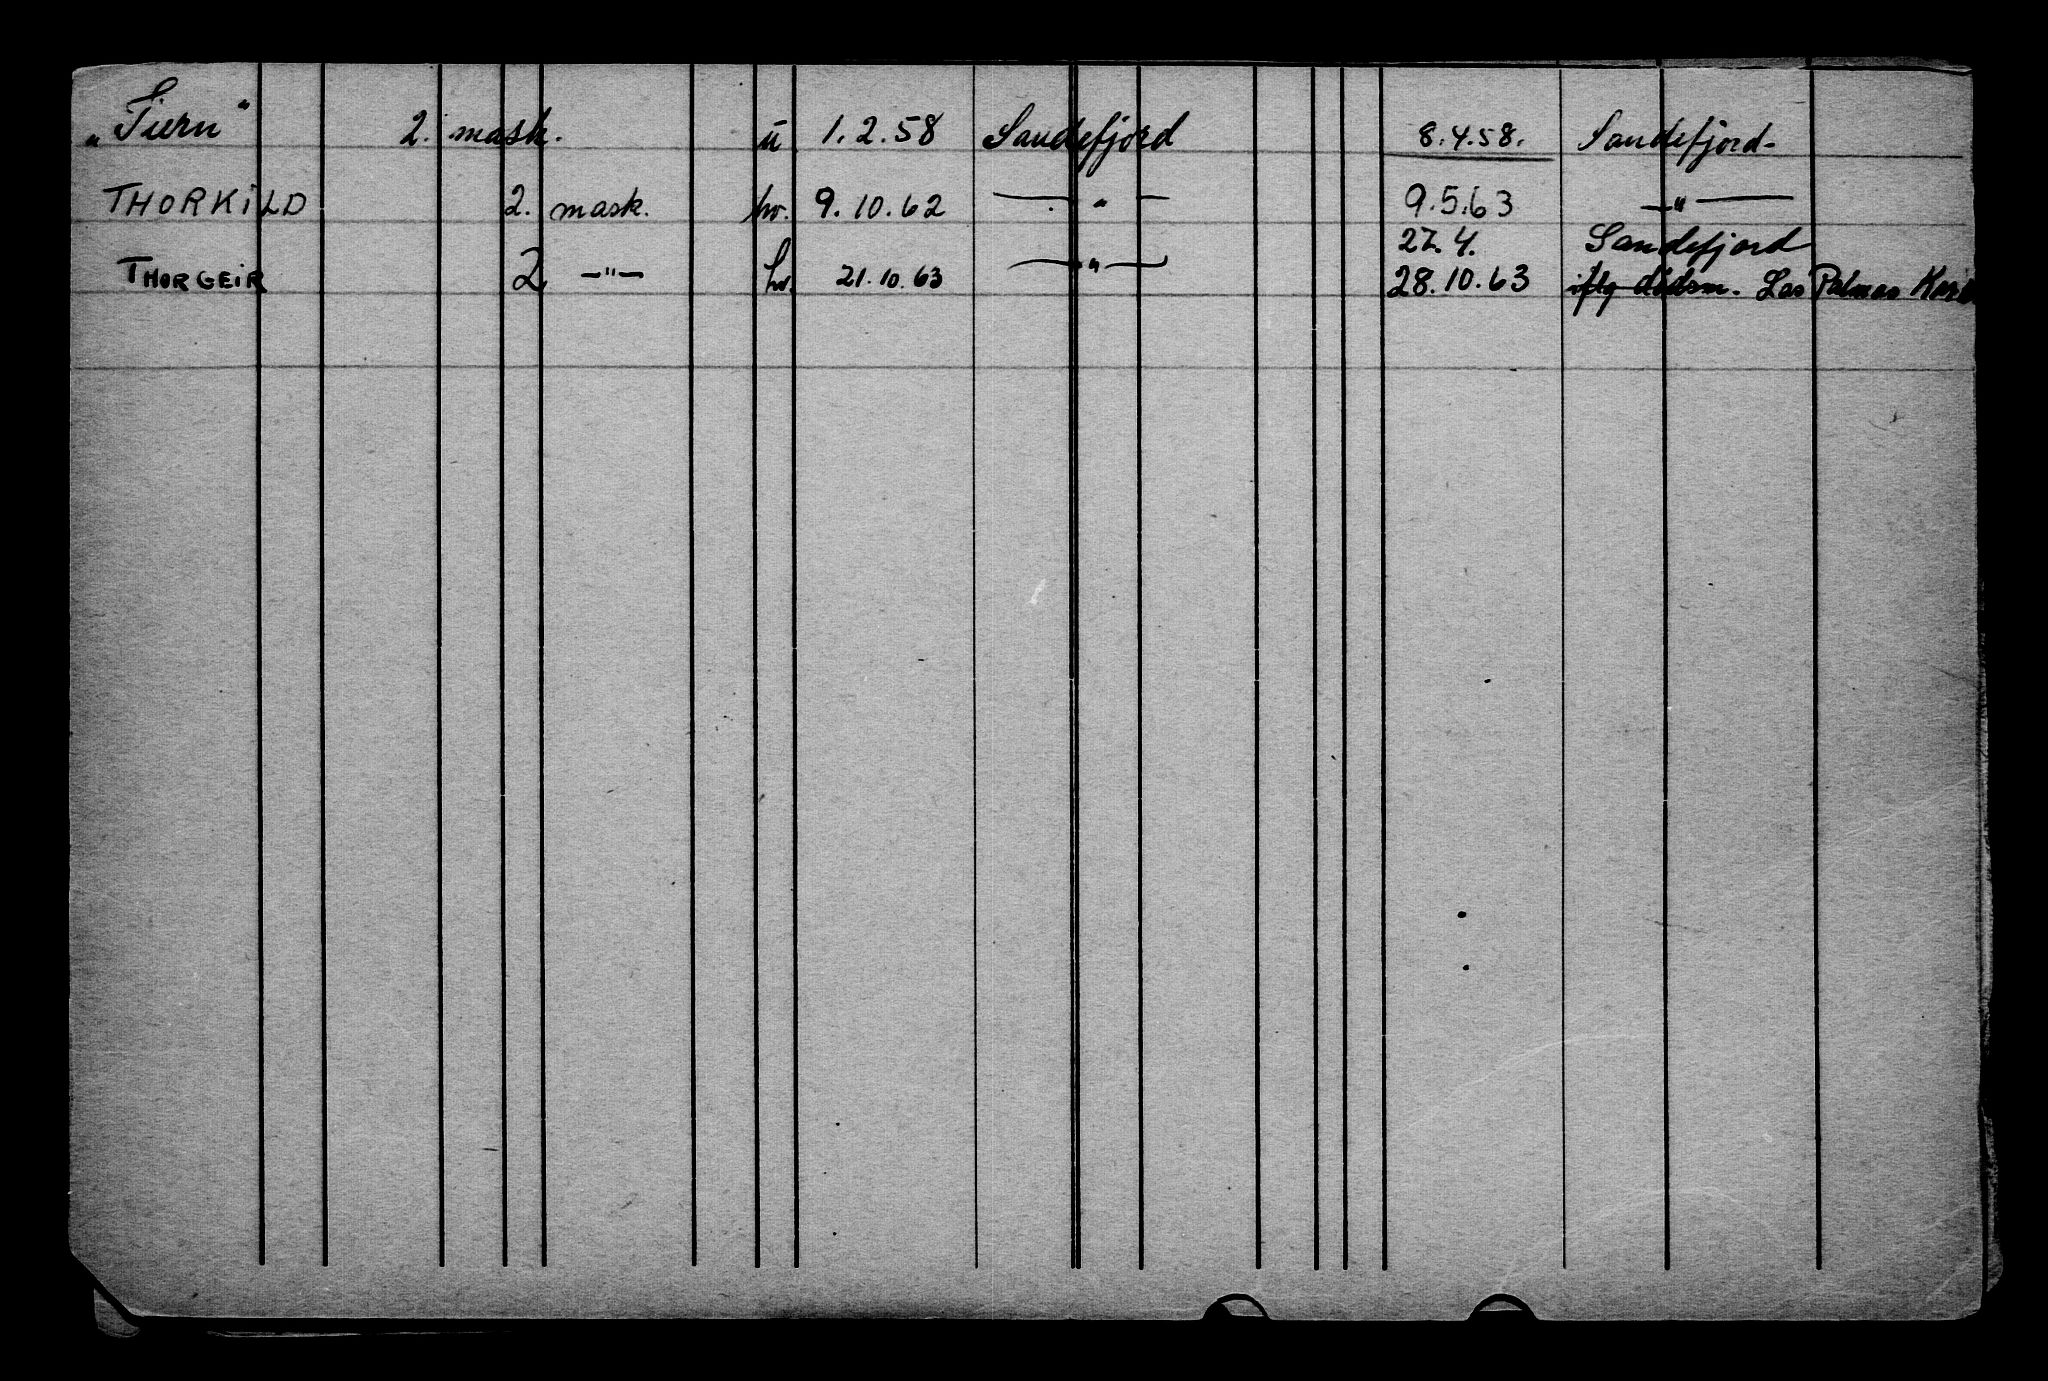 „Tiern" 2. mask. u 1.2.58 Sandefjord 8.4.58. Sandefjord.
THORKILD 2. mask. hv. 9.10.62 — " — 9.5.63 — " —
27.4. Sandefjord
THORGEIR 2. —"— hv. 21.10.63 — " — 28.10.63 iflg dødsm. Las Palmas